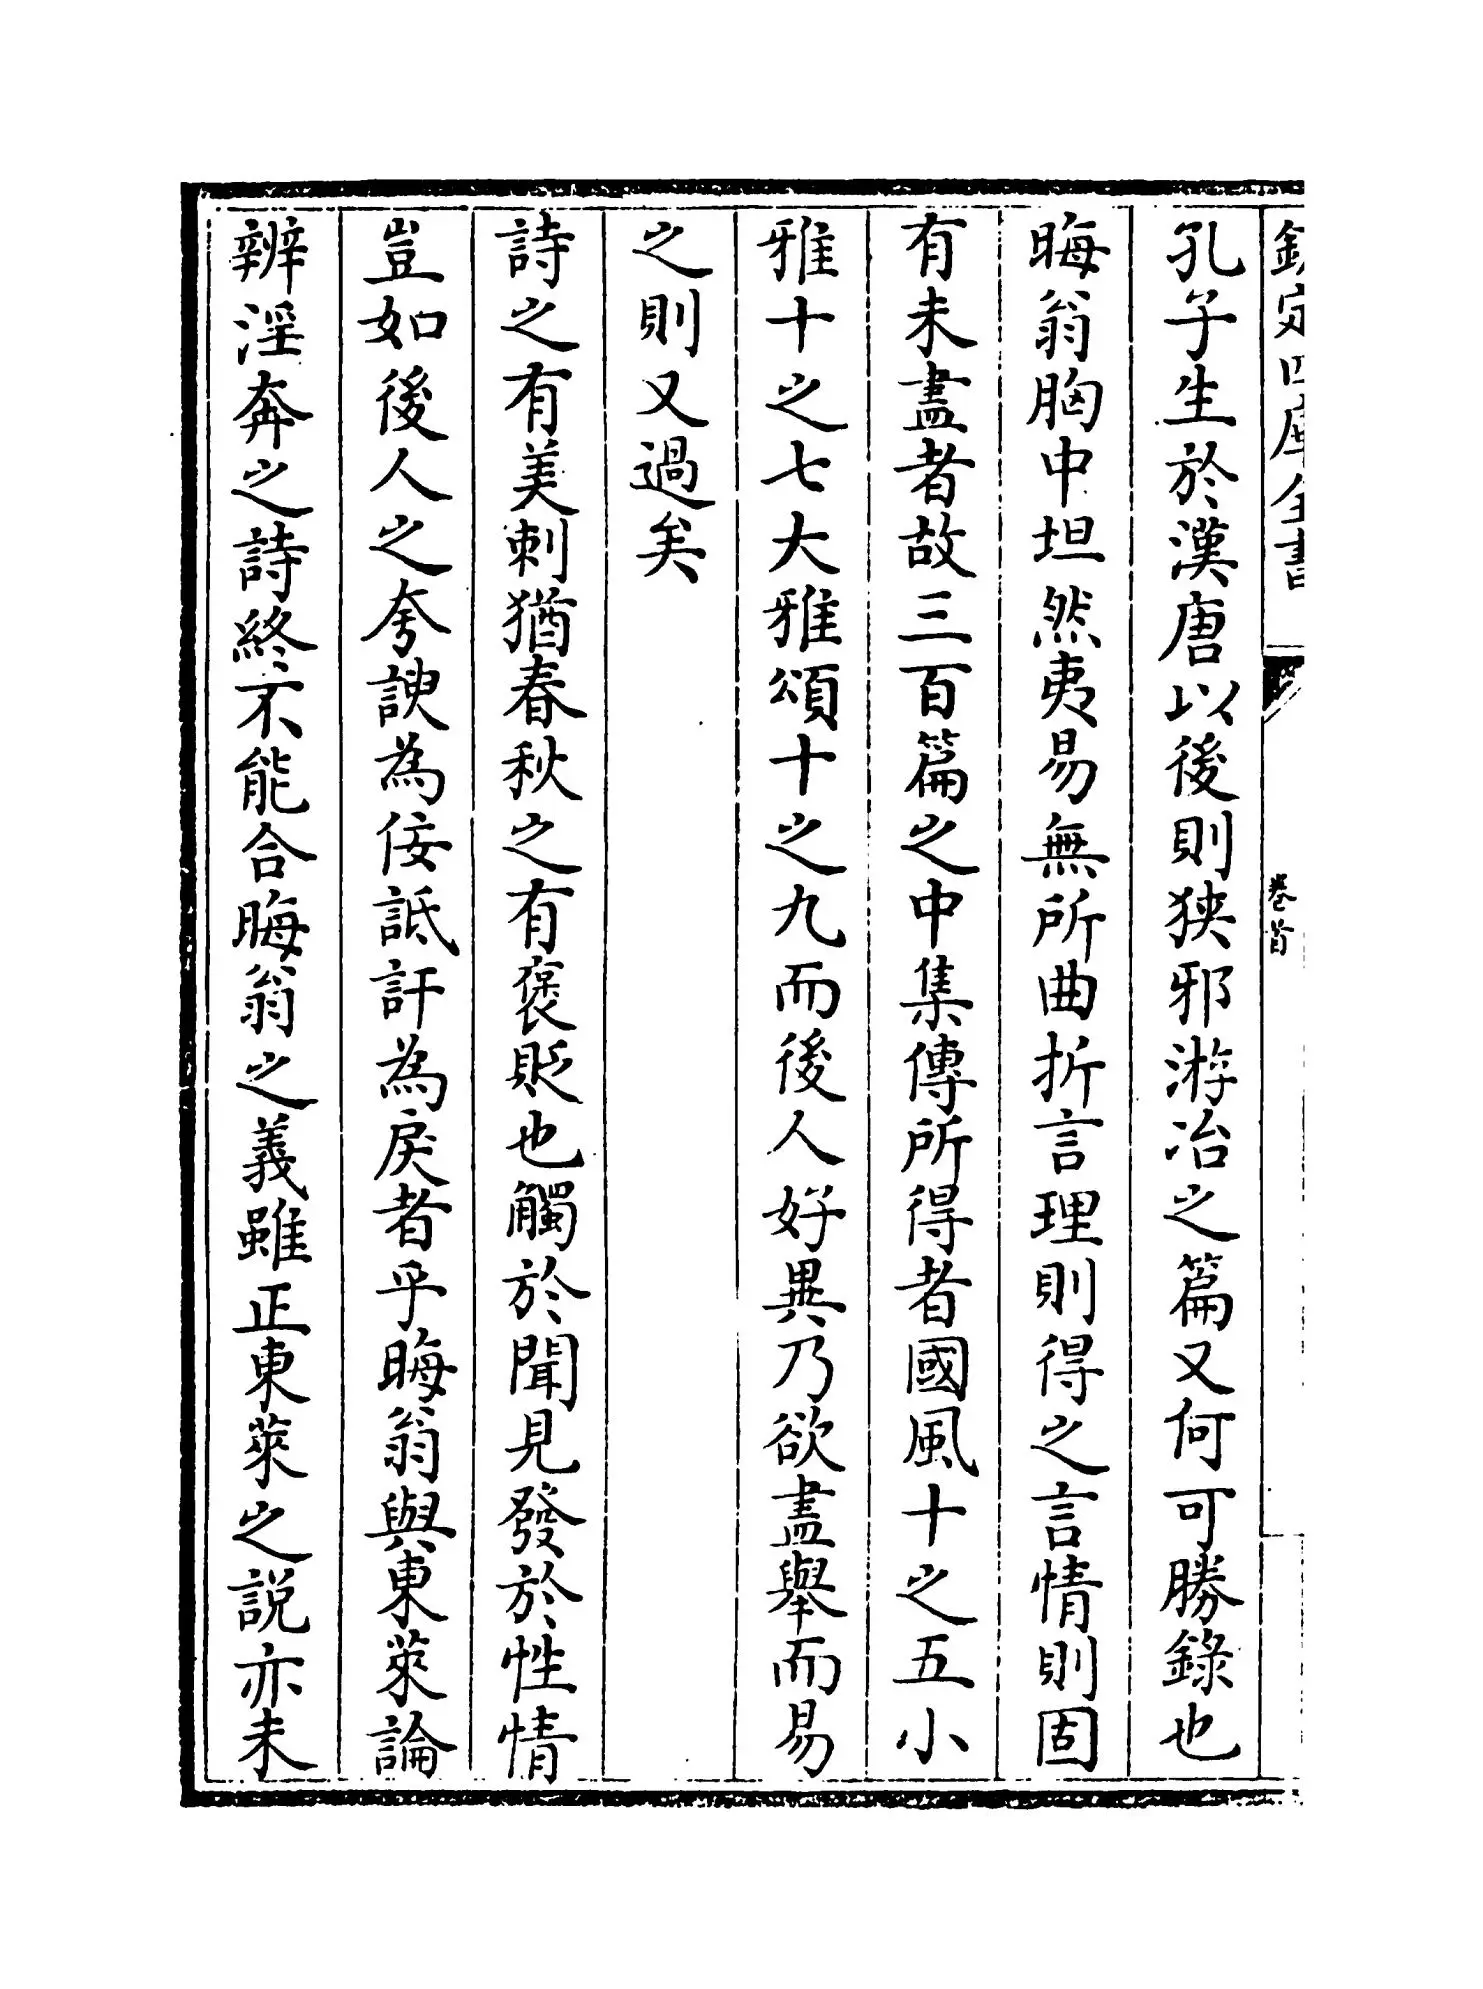 欽定四庫全書
卷首
孔子生於漢唐以後則狹邪游冶之篇又何可勝錄也
晦翁胸中坦然夷易無所曲折言理則得之言情則固
有未盡者故三百篇之中集傳所得者國風十之五小
雅十之七大雅頌十之九而後人好異乃欲盡舉而易
之則又過矣
詩之有美刺猶春秋之有褒貶也觸於聞見發於性情
豈如後人之夸諛為佞詆訐為戾者乎晦翁與東萊論
辨淫奔之詩終不能合晦翁之義雖正東萊之說亦未